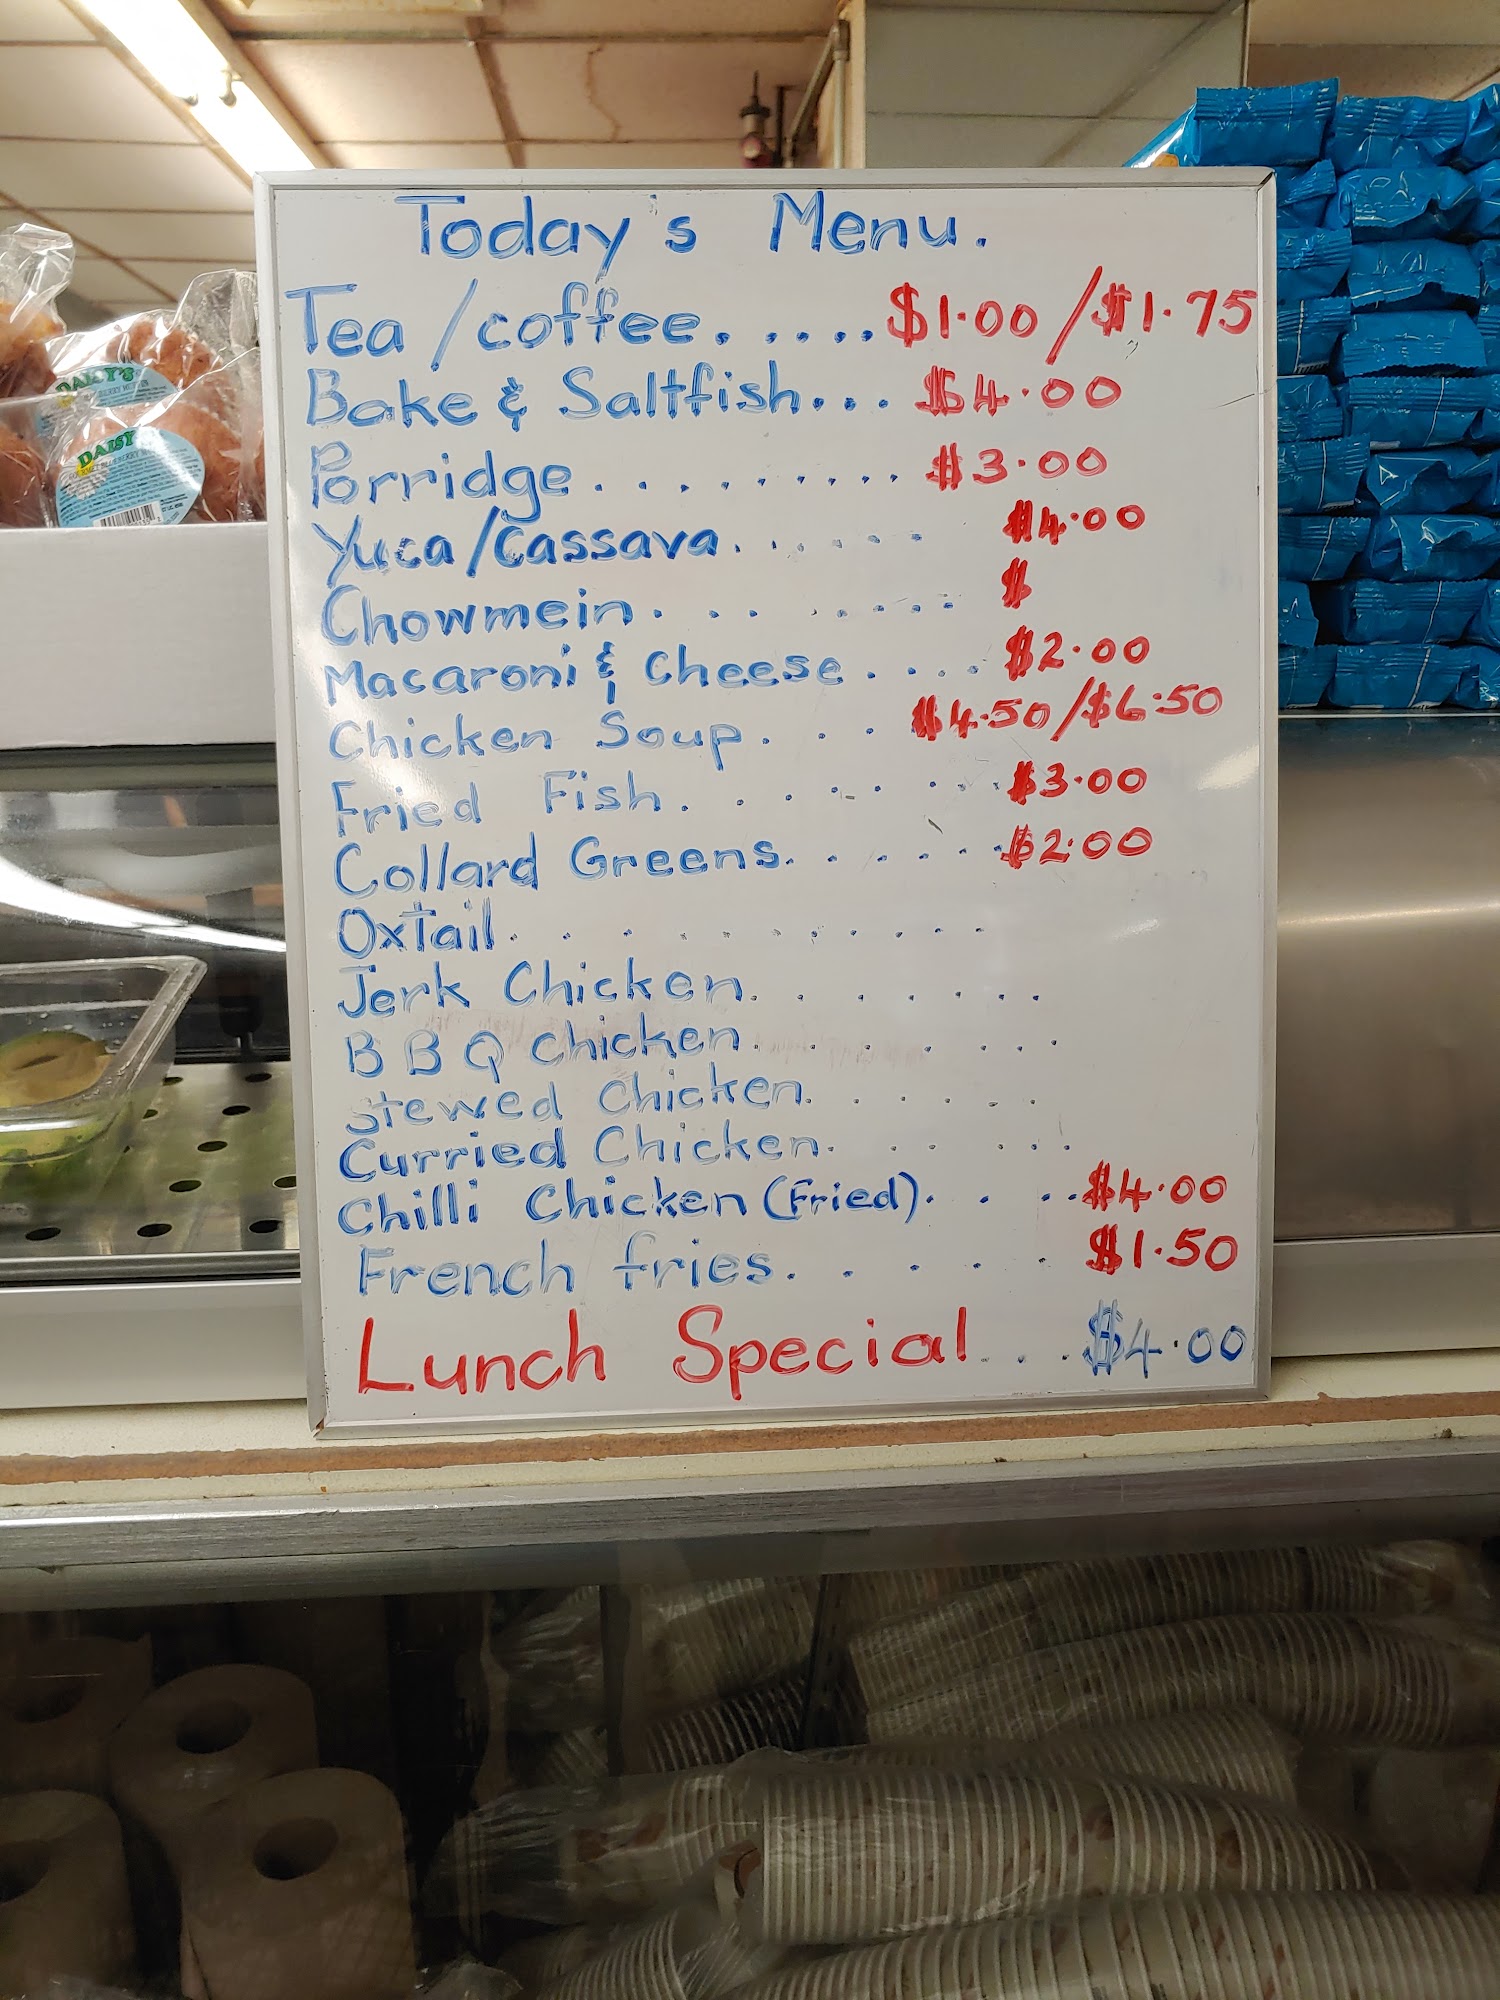 Today's Menu.
Tea/coffee.....$1.00/$1.75
Bake & Saltfish... $4.00
Porridge.......... $3.00
Yuca/Cassava...... $4.00
Chowmein........ $
Macaroni & Cheese.... $2.00
Chicken Soup.... $4.50/$6.50
Fried Fish........$3.00
Collard Greens.......$2.00
Oxtail...........
Jerk Chicken.......
BBQ Chicken.......
Stewed Chicken......
Curried Chicken......
Chilli Chicken (Fried).....$4.00
French fries...... $1.50
Lunch Special.....$4.00
DAISY'S
DAISY